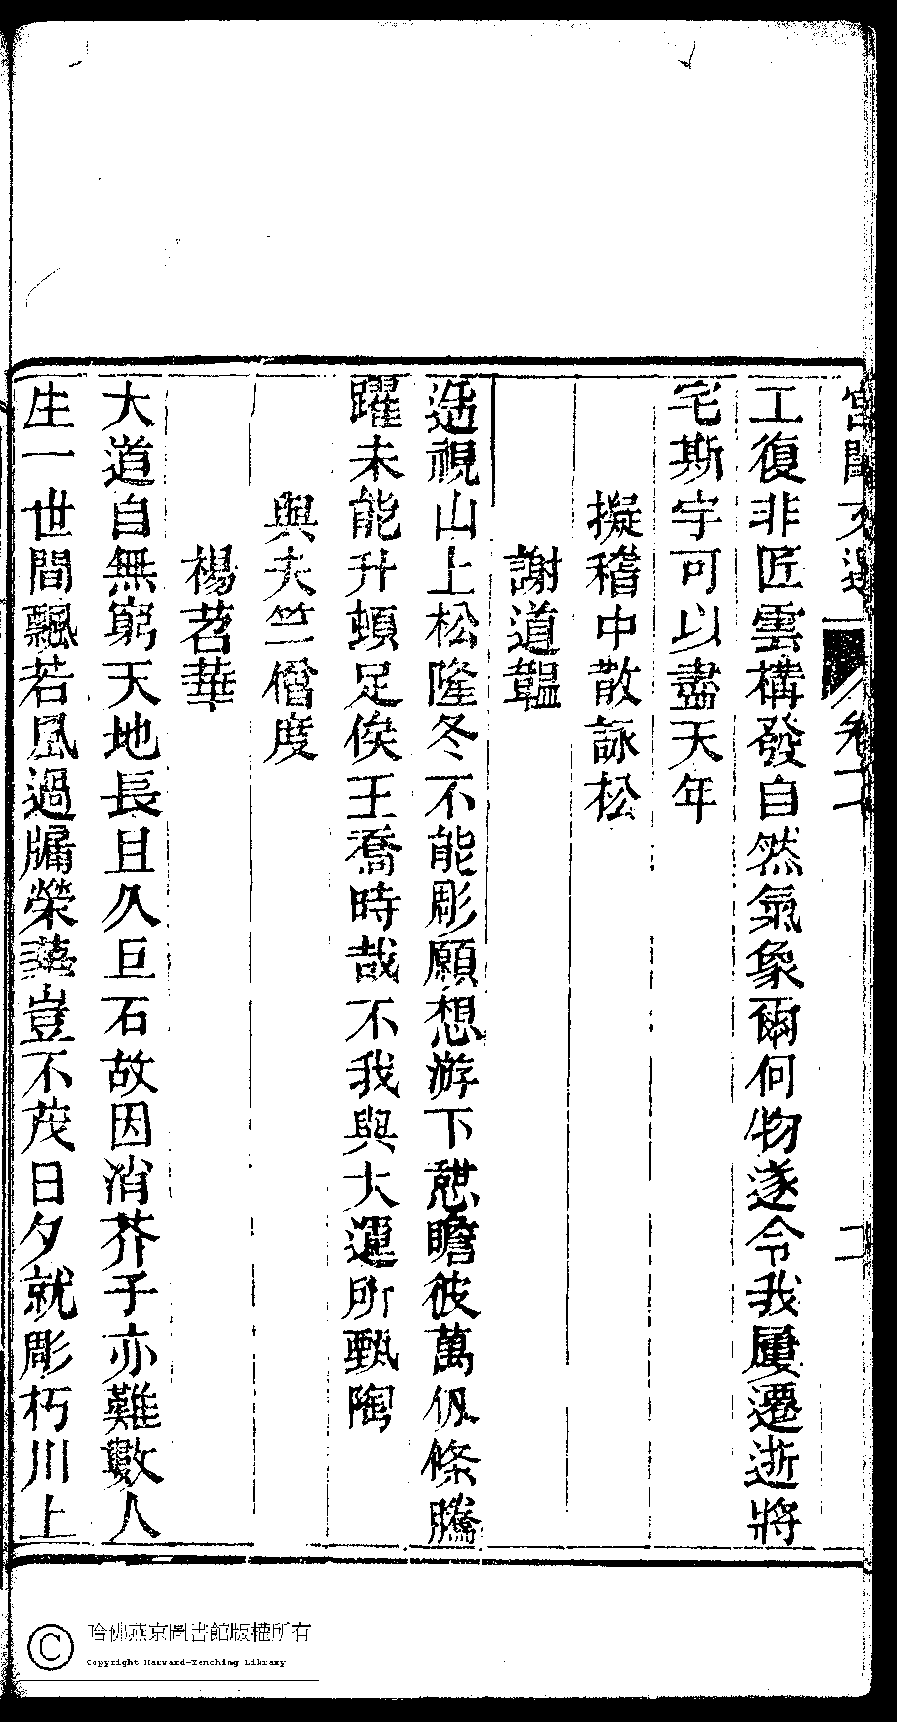 宮閨文選 卷二 二
工復非匠雲構發自然氣象爾何物遂令我屢遷逝將
宅斯宇可以盡天年
擬嵇中散詠松
謝道韞
遥視山上松隆冬不能彫願想游下憇瞻彼萬仞條騰
躍未能升頓足俟王喬時哉不我與大運所甄陶
與夫竺僧度
楊苕華
大道自無窮天地長且久巨石故因消芥子亦難數人
生一世間飄若風過牖榮華豈不茂日夕就彫朽川上
哈佛燕京圖書館版權所有
Copyright Harvard-Yenching Library